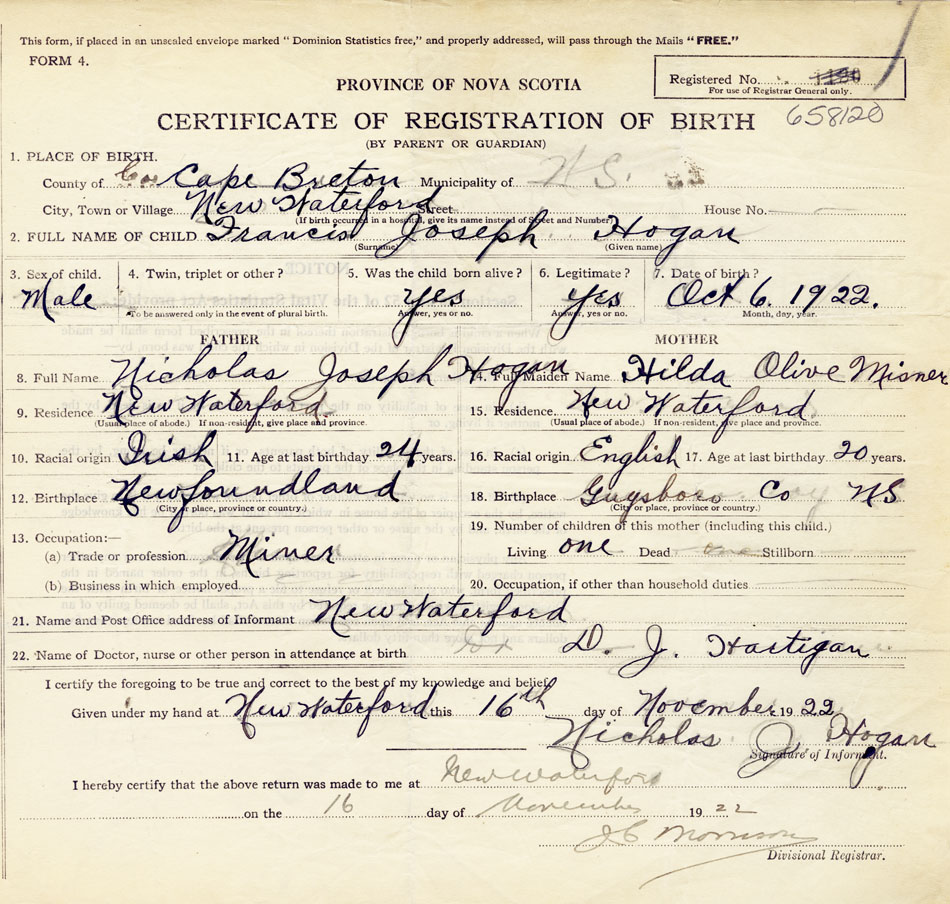 This form, if placed in an unsealed envelope marked "Dominion Statistics free," and properly addressed, will pass through the Mails "FREE."
FORM 4.
Registered No. 1190
For use of Registrar General only.
PROVINCE OF NOVA SCOTIA
CERTIFICATE OF REGISTRATION OF BIRTH 658120
(BY PARENT OR GUARDIAN)
1. PLACE OF BIRTH.
County of Cape Breton Municipality of N.S.
City, Town or Village New Waterford Street House No.
(If birth occurred in a hospital, give its name instead of Street and Number)
2. FULL NAME OF CHILD Francis Joseph Hogan
(Surname) (Given name)
3. Sex of child. 4. Twin, triplet or other? 5. Was the child born alive? 6. Legitimate? 7. Date of birth?
Male Yes Yes Oct 6. 1922.
To be answered only in the event of plural birth. Answer, yes or no. Answer, yes or no. Month, day, year.
FATHER MOTHER
8. Full Name Nicholas Joseph Hogan 14. Full Maiden Name Hilda Olive Misner
9. Residence New Waterford 15. Residence New Waterford
(Usual place of abode.) If non-resident, give place and province. (Usual place of abode.) If non-resident, give place and province.
10. Racial origin Irish 11. Age at last birthday 24 years. 16. Racial origin English 17. Age at last birthday 20 years.
12. Birthplace Newfoundland 18. Birthplace Guysboro Co NS
(City or place, province or country.) (City or place, province or country.)
13. Occupation:— 19. Number of children of this mother (including this child.)
(a) Trade or profession Miner Living one Dead one Stillborn
(b) Business in which employed 20. Occupation, if other than household duties
21. Name and Post Office address of Informant New Waterford
22. Name of Doctor, nurse or other person in attendance at birth D. J. Hartigan
I certify the foregoing to be true and correct to the best of my knowledge and belief.
Given under my hand at New Waterford this 16th day of November 1922
Nicholas J Hogan
Signature of Informant.
I hereby certify that the above return was made to me at New Waterford
on the 16 day of November 1922
J C Morrison
Divisional Registrar.